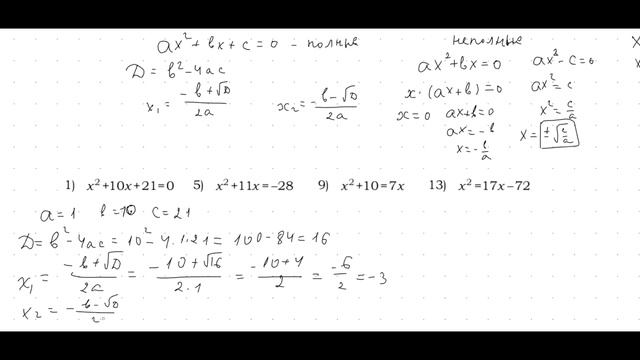 ax²+bx+c=0 - полные
D = b²-4ac
x₁ = (-b+√D)/2a x₂ = (-b-√D)/2a
неполные
ax²+bx=0
x·(ax+b)=0
x=0 ax+b=0
ax=-b
x=-b/a
ax²-c=0
ax²=c
x²=c/a
x=±√(c/a)
1) x²+10x+21=0 5) x²+11x=-28 9) x²+10=7x 13) x²=17x-72
a=1 b=10 c=21
D=b²-4ac=10²-4·1·21=100-84=16
x₁ = (-b+√D)/2a = (-10+√16)/2·1 = (-10+4)/2 = -6/2 = -3
x₂ = (-b-√D)/2